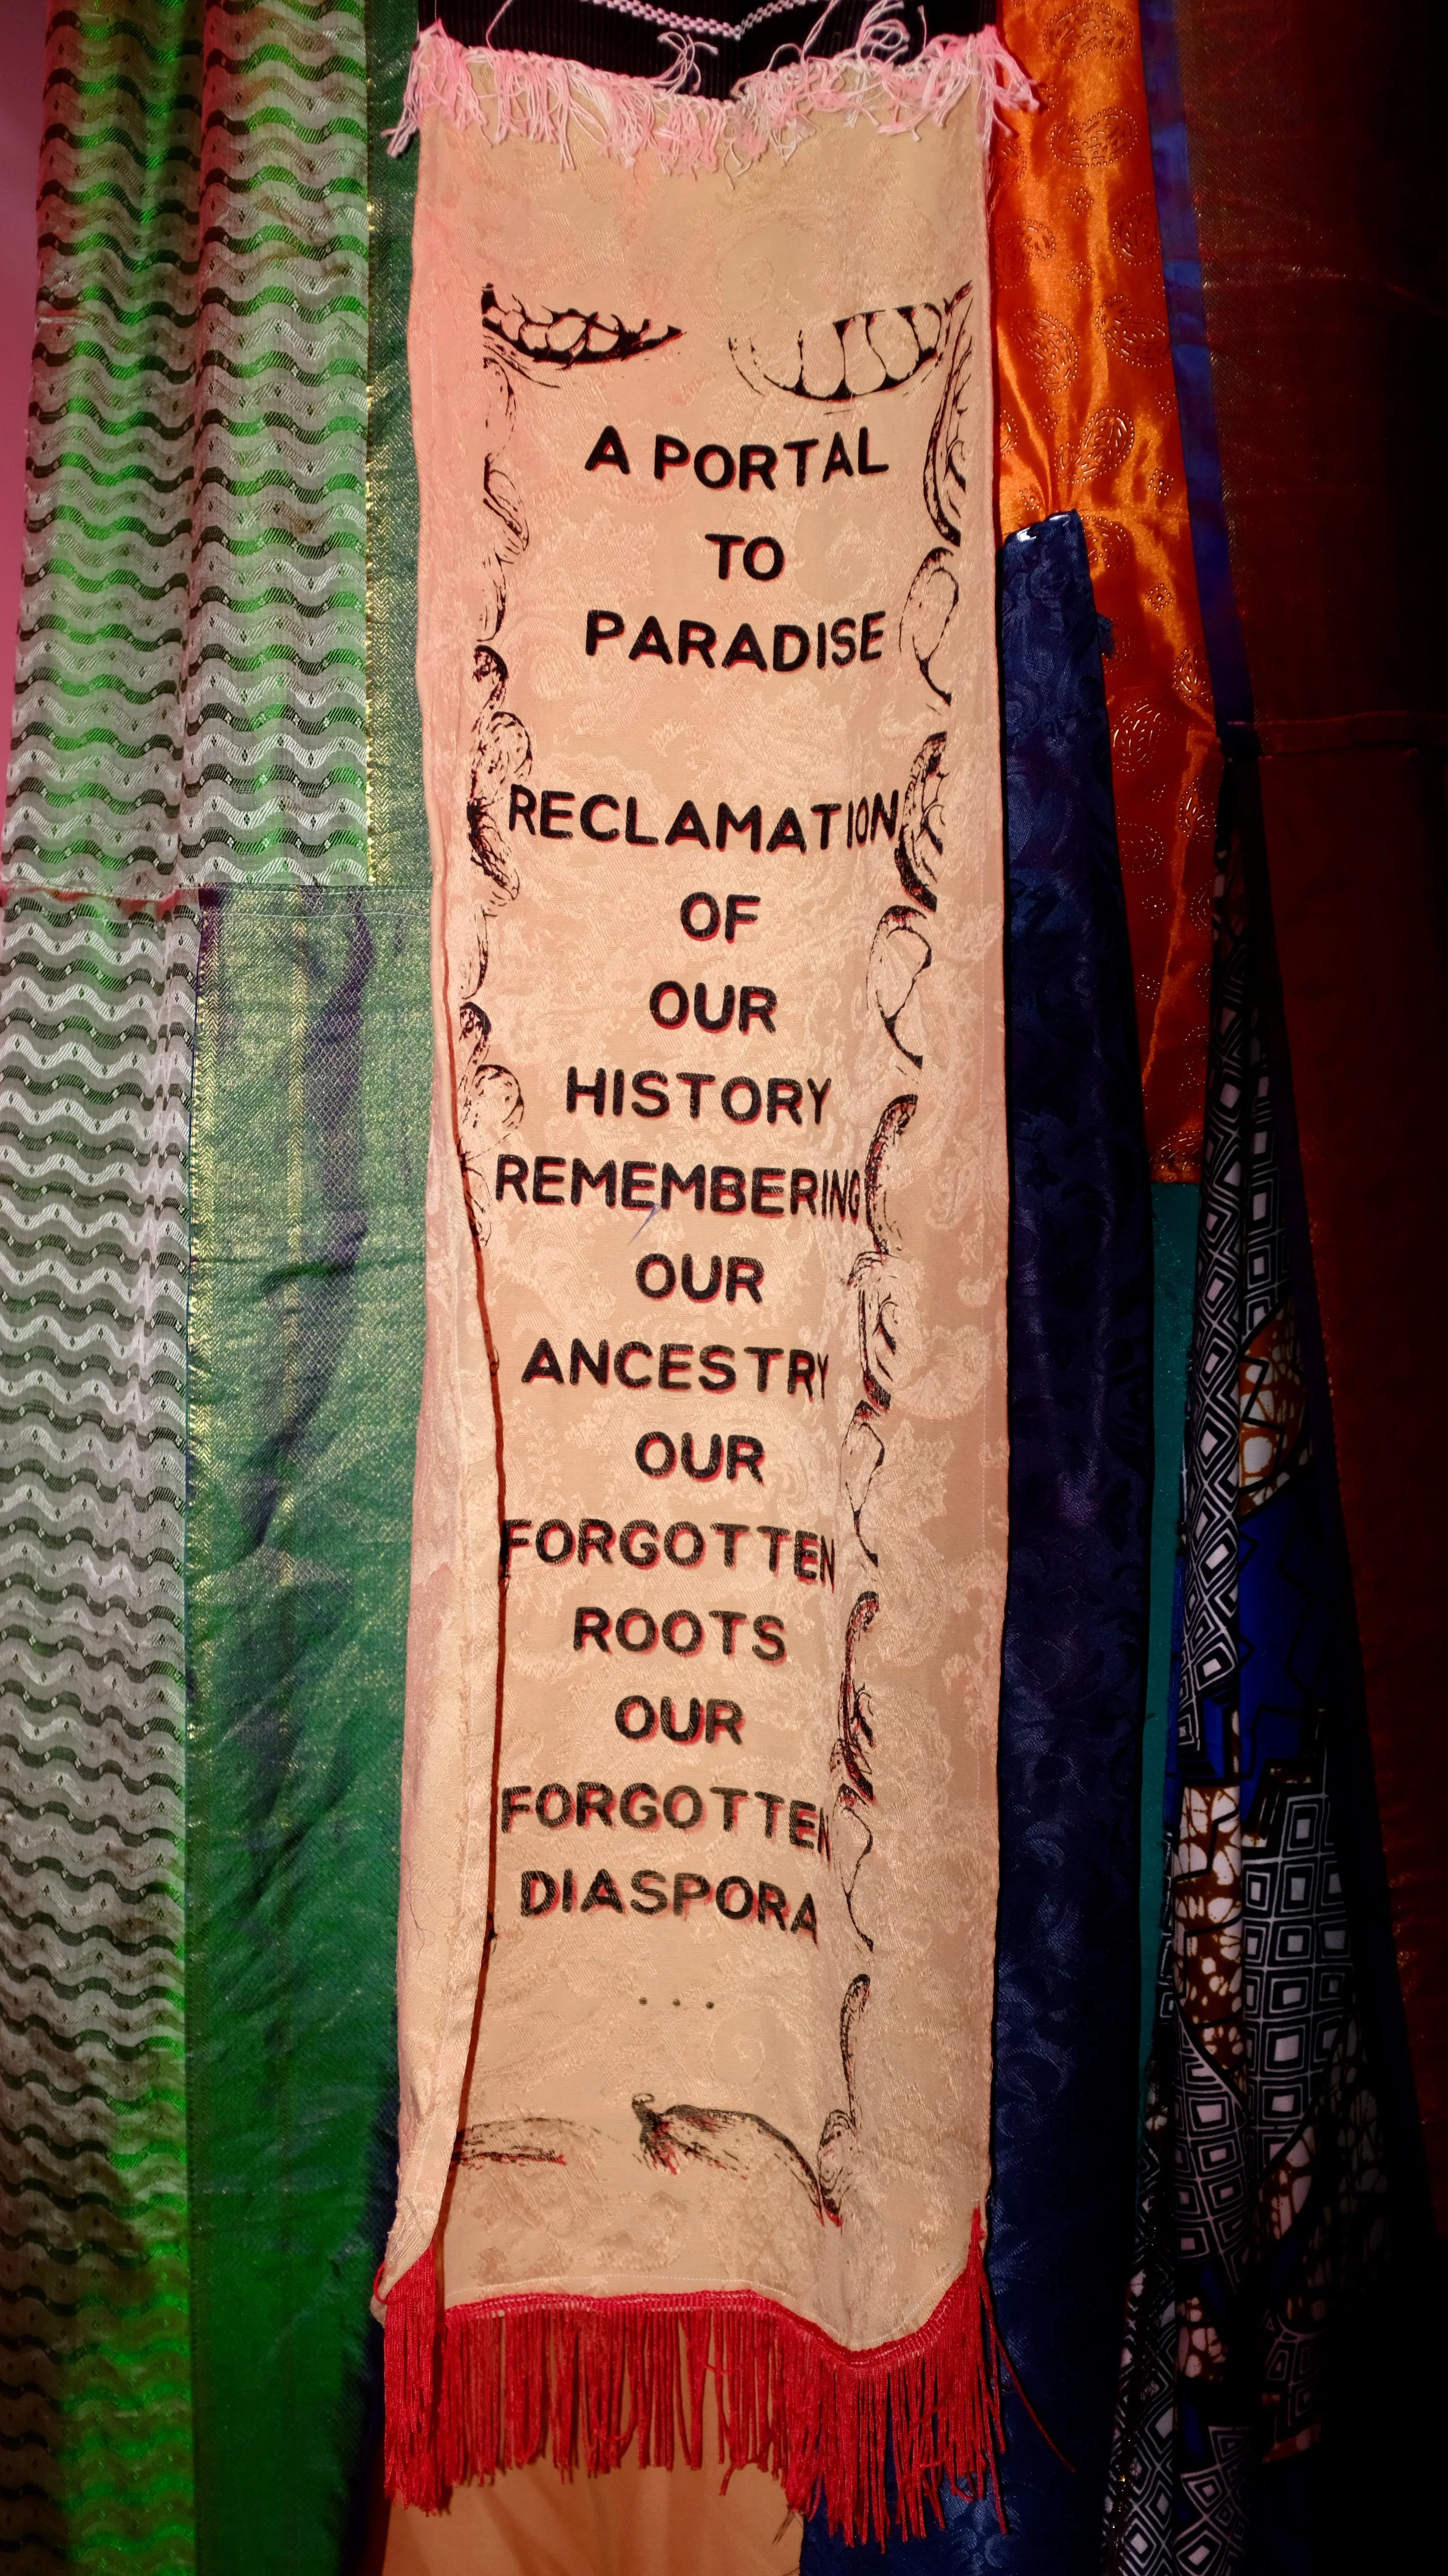 A PORTAL
TO
PARADISE
RECLAMATION
OF
OUR
HISTORY
REMEMBERING
OUR
ANCESTRY
OUR
FORGOTTEN
ROOTS
OUR
FORGOTTEN
DIASPORA
...